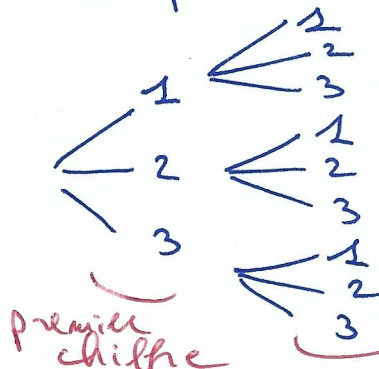 1
2
3
1
2
3
1
2
3
1
2
3
premier
chiffre